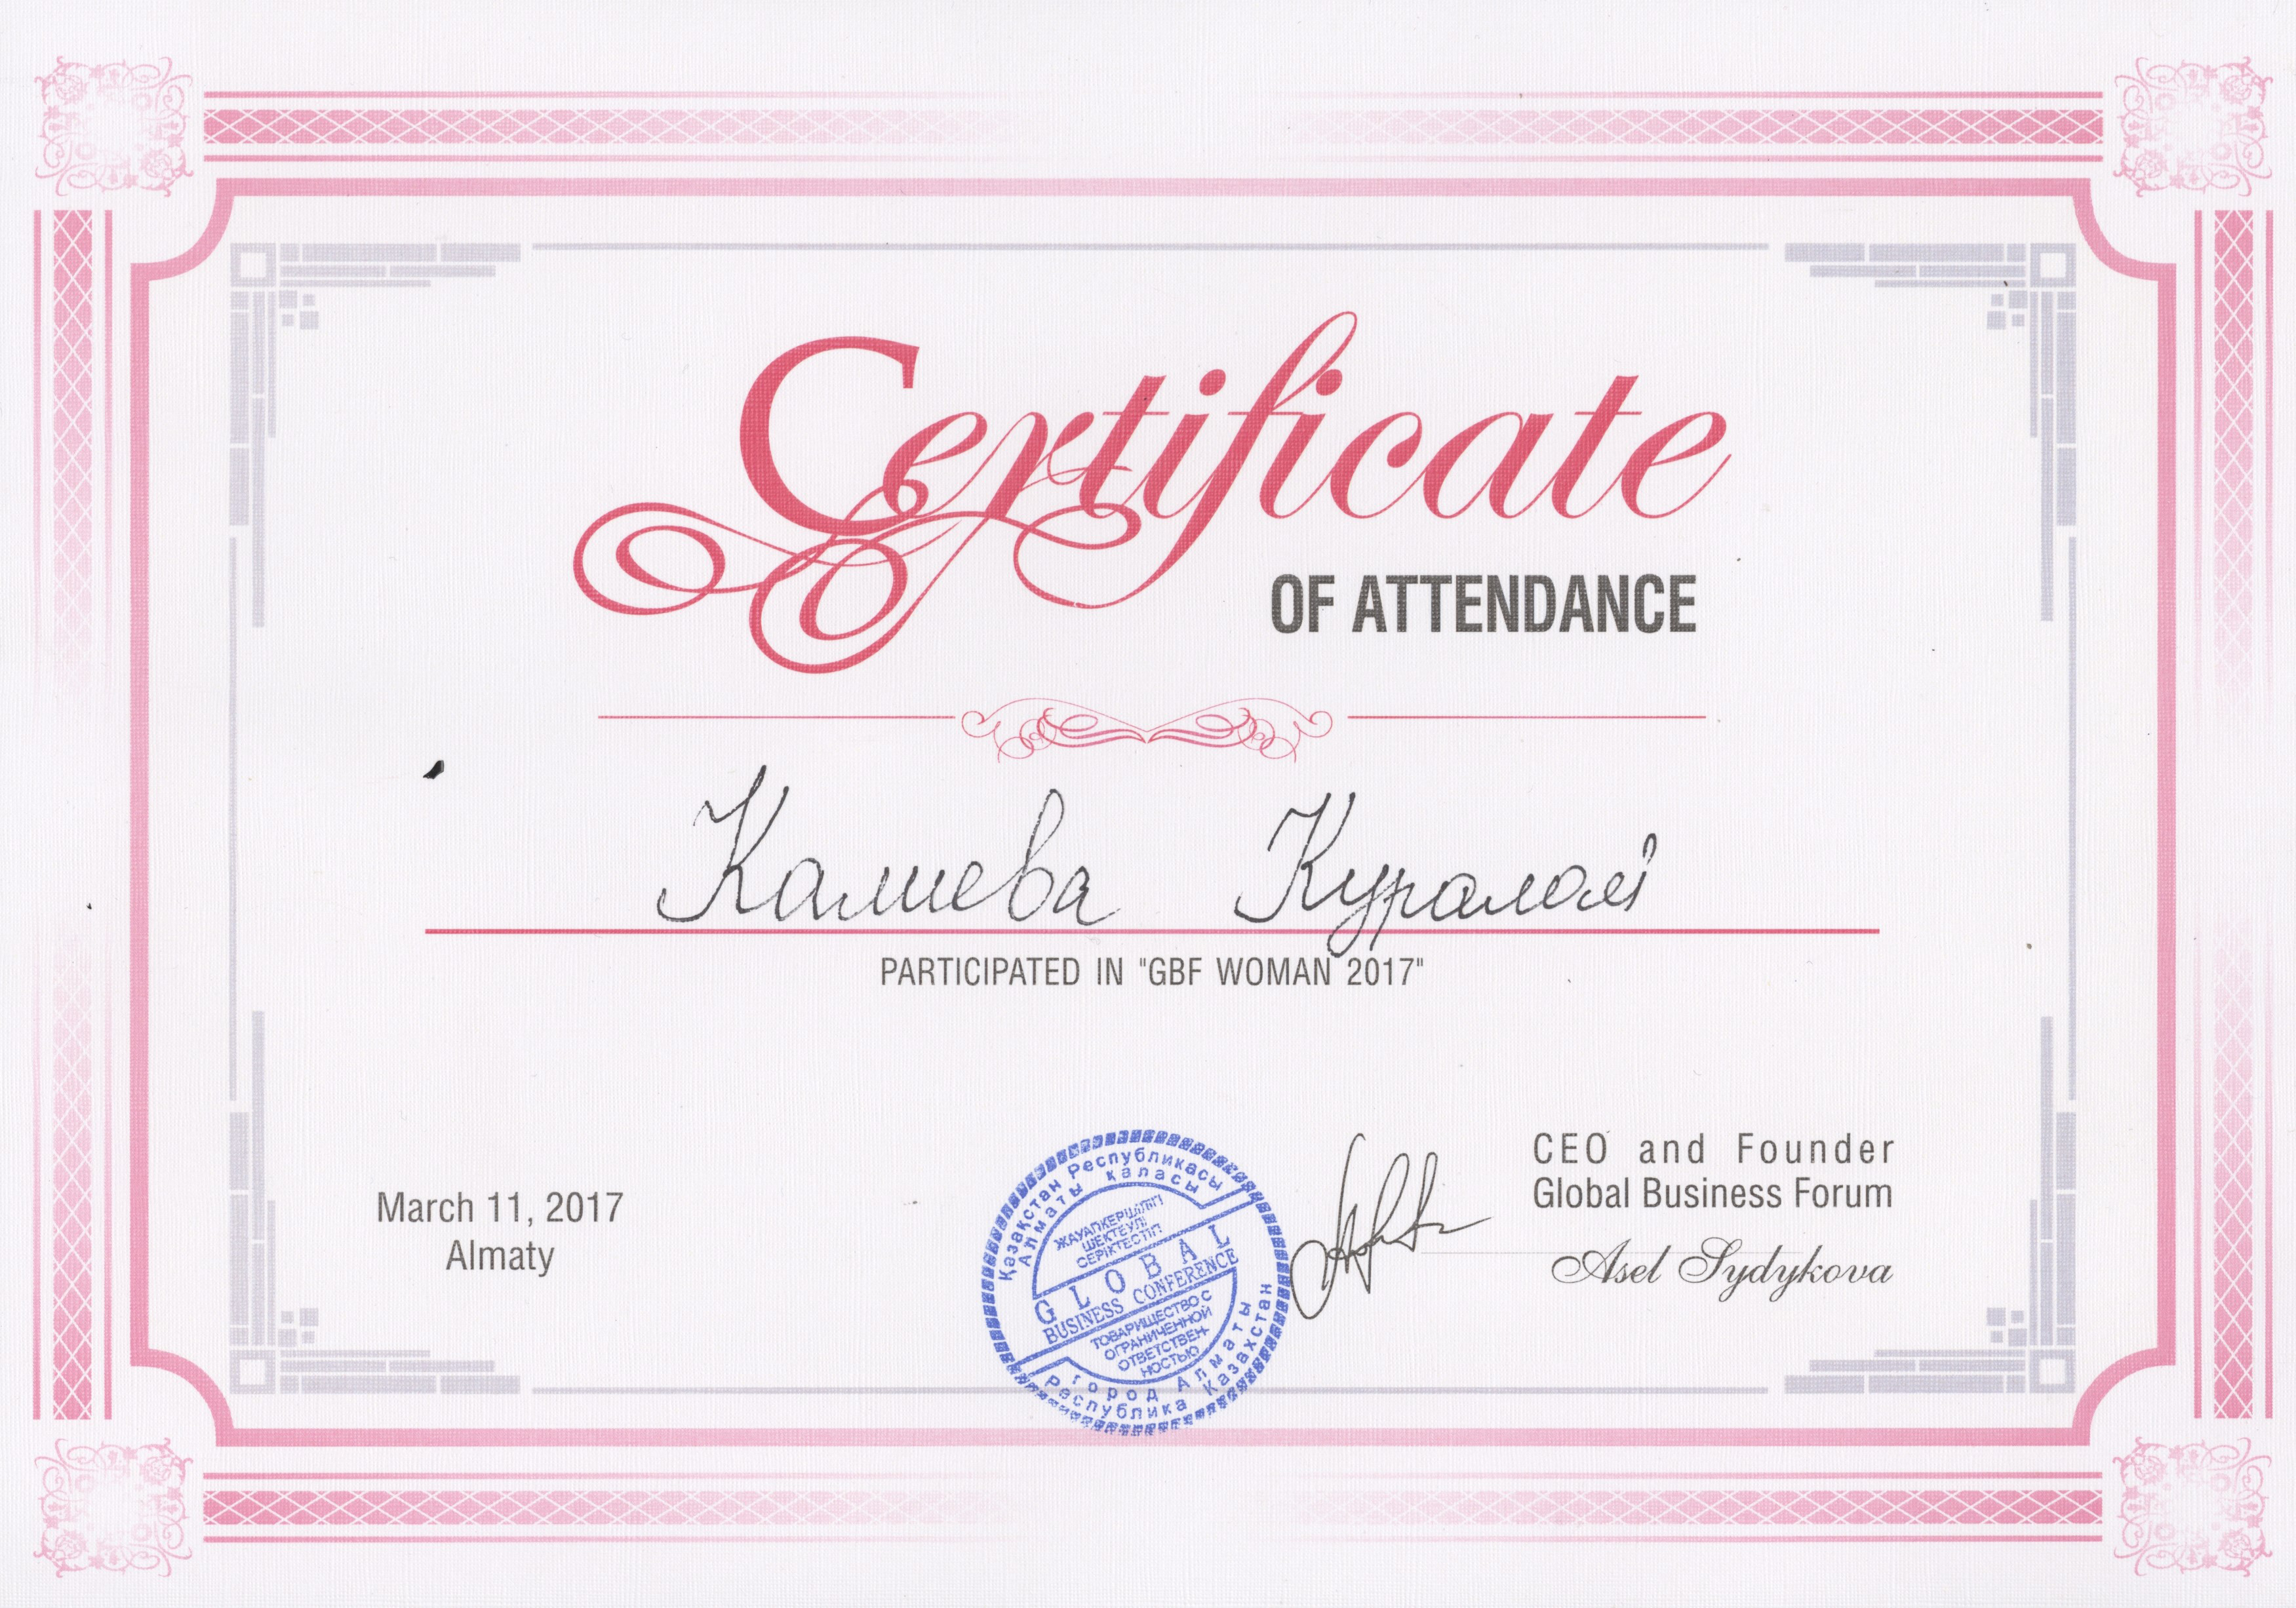 Certificate
OF ATTENDANCE
Калиева Куралай
PARTICIPATED IN "GBF WOMAN 2017"
March 11, 2017
Almaty
Қазақстан Республикасы
Алматы қаласы
ЖАУАПКЕРШІЛІГІ
ШЕКТЕУЛІ
СЕРІКТЕСТІГІ
GLOBAL
BUSINESS CONFERENCE
ТОВАРИЩЕСТВО С
ОГРАНИЧЕННОЙ
ОТВЕТСТВЕН-
НОСТЬЮ
город Алматы
Республика Казахстан
CEO and Founder
Global Business Forum
Asel Sydykova